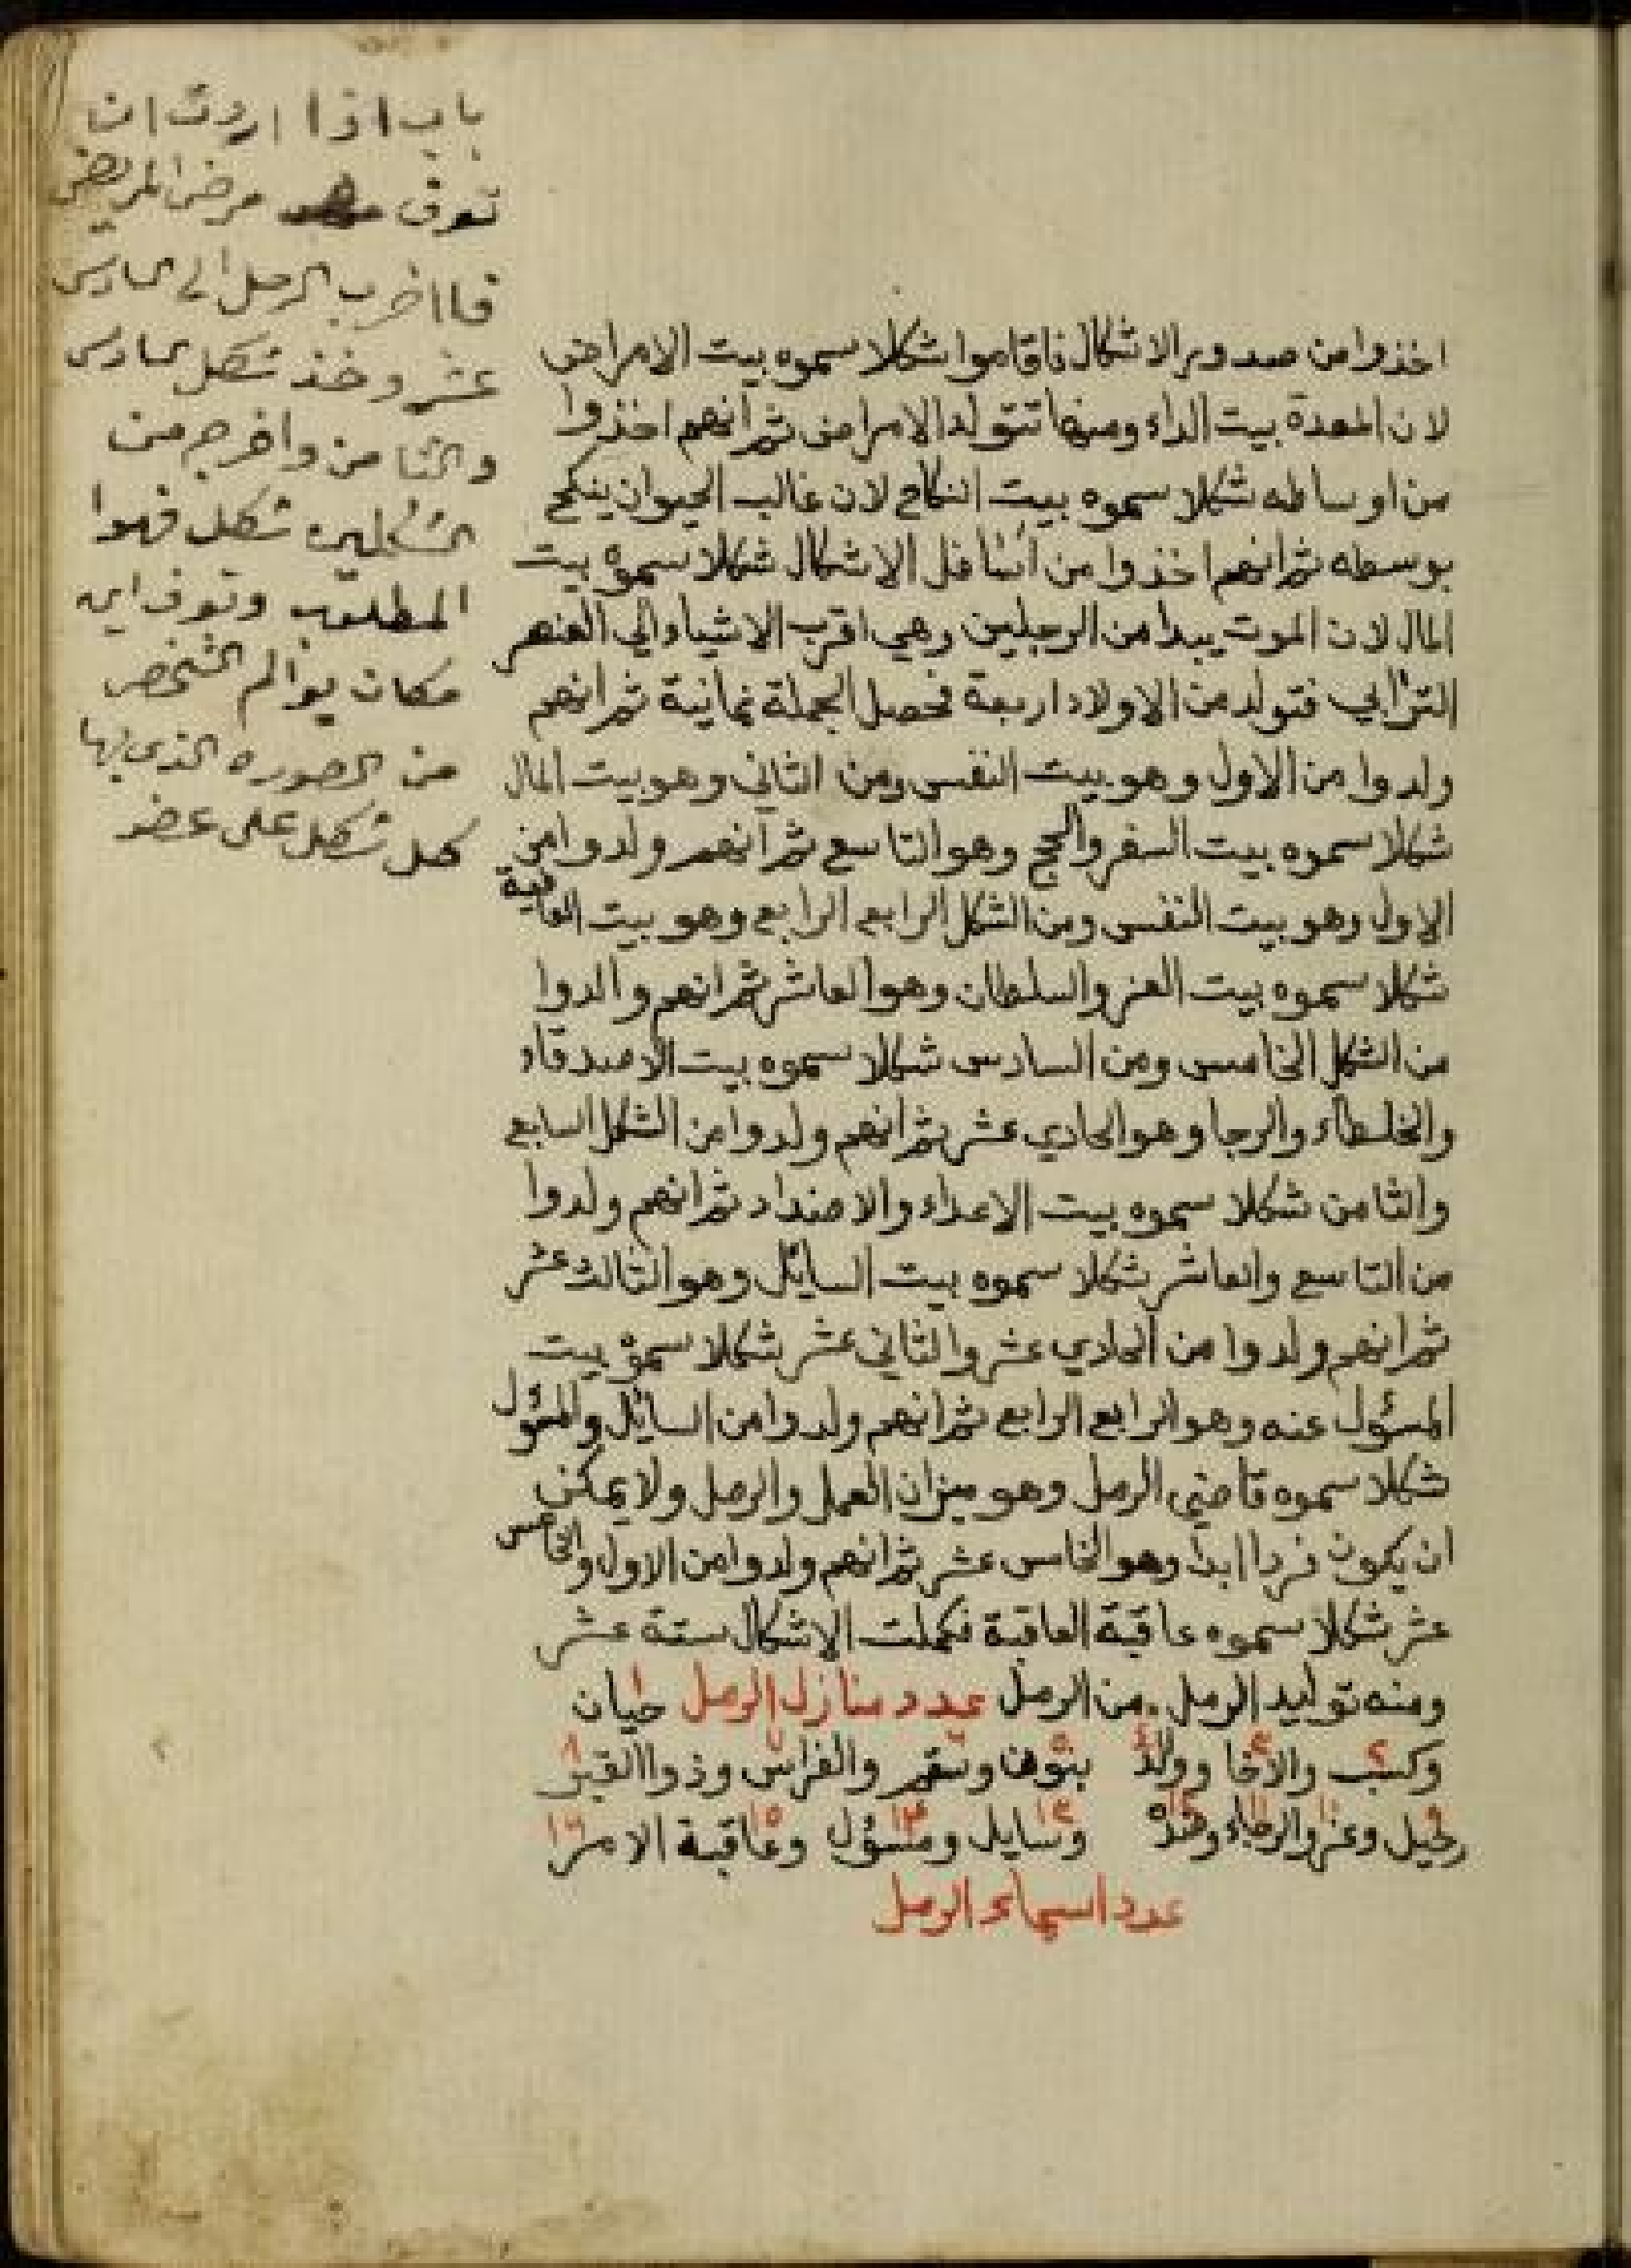 اخذوا من صدور الاشكال فاقاموا شكلا سموه بيت الامراض
لان المعدة بيت الداء ومنها تتولد الامراض ثم انهم اخذوا
من اوساطه شكلا سموه بيت النكاح لان غالب الحيوان ينكح
بوسطه ثم انهم اخذوا من اسافل الاشكال شكلا سموه بيت
المال لان الموت يبدا من الرجلين وهي اقرب الاشياء الي العنصر
الترابي فتولد من الاولاد اربعة فحصل الجملة ثمانية ثم انهم
ولدوا من الاول وهو بيت النفس ومن الثاني وهو بيت المال
شكلا سموه بيت السفر والحج وهو التاسع ثم انهم ولدوا من
الاول وهو بيت النفس ومن الشكل الرابع الرابع وهو بيت العاقبة
شكلا سموه بيت العز والسلطان وهو العاشر ثم انهم والدوا
من الشكل الخامس ومن السادس شكلا سموه بيت الاصدقاء
والخلطاء والرجا وهو الحادي عشر ثم انهم ولدوا من الشكل السابع
والثامن شكلا سموه بيت الاعداء والاضداد ثم انهم ولدوا
من التاسع والعاشر شكلا سموه بيت السايل وهو الثالث عشر
ثم انهم ولدوا من الحادي عشر والثاني عشر شكلا سموه بيت
المسؤل عنه وهو الرابع الرابع ثم انهم ولدوا من السايل والمسؤل
شكلا سموه قاضي الرمل وهو ميزان العمل والرمل ولا يمكن
ان يكون فردا ابدا وهو الخامس عشر ثم انهم ولدوا من الاول والخامس
عشر شكلا سموه عاقبة العاقبة فكملت الاشكال ستة عشر
ومنه توليد الرمل من الرمل عدد منازل الرمل حيان
وكسب والاخا وولد بنوها وسقم والفراس وذوا القبر
رحيل وعز والرجاء وضد وسايل ومسؤل وعاقبة الامر
عدد اسماء الرمل
باب اذا اردت ان
تعرف مرض المريض
فااضرب الرمل الى السادس
عشر وخذ شكل السادس
والثامن واخرج من
الشكلين شكل فهوا
المطلوب وتعرف اين
مكان يوألم الشخص
من الصوره الذي بها
كل شكل على عضو